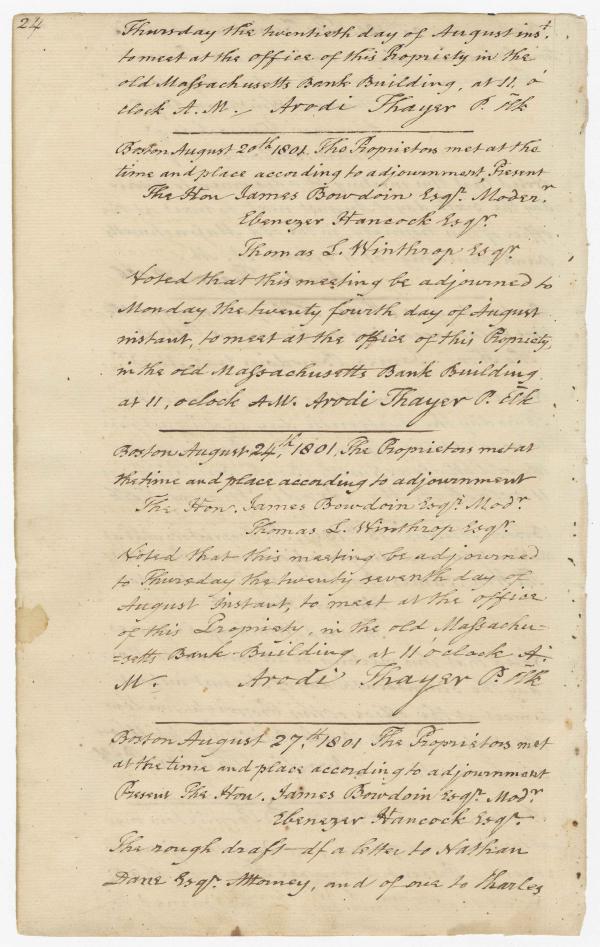 24
Thursday the twentieth day of August inst.
to meet at the office of this Propriety in the
old Massachusetts Bank Building, at 11, o'
clock A. M. Arodi Thayer P. Clk
Boston August 20th 1801. The Proprietors met at the
time and place according to adjournment, Present
The Hon James Bowdoin Esqr. Moder.r
Ebenezer Hancock Esqr.
Thomas L. Winthrop Esqr.
Voted that this meeting be adjourned to
Monday the twenty fourth day of August
instant, to meet at the office of this Propriety,
in the old Massachusetts Bank Building
at 11, oclock A.M. Arodi Thayer P. Clk
Boston August 24,th 1801. The Proprietors met at
the time and place according to adjournment
The Hon. James Bowdoin Esqr. Modr.
Thomas L. Winthrop Esqr.
Voted that this meeting be adjourned
to Thursday the twenty seventh day of
August Instant, to meet at the office
of this Propriety, in the old Massachu-
-setts Bank Building, at 11 o'clock A.
M. Arodi Thayer P. Clk
Boston August 27,th 1801 The Proprietors met
at the time and place according to adjournment
Present The Hon. James Bowdoin Esqr. Modr
Ebenezer Hancock Esqr.
The rough draft of a letter to Nathan
Dane Esqr. Attorney, and of one to Charles